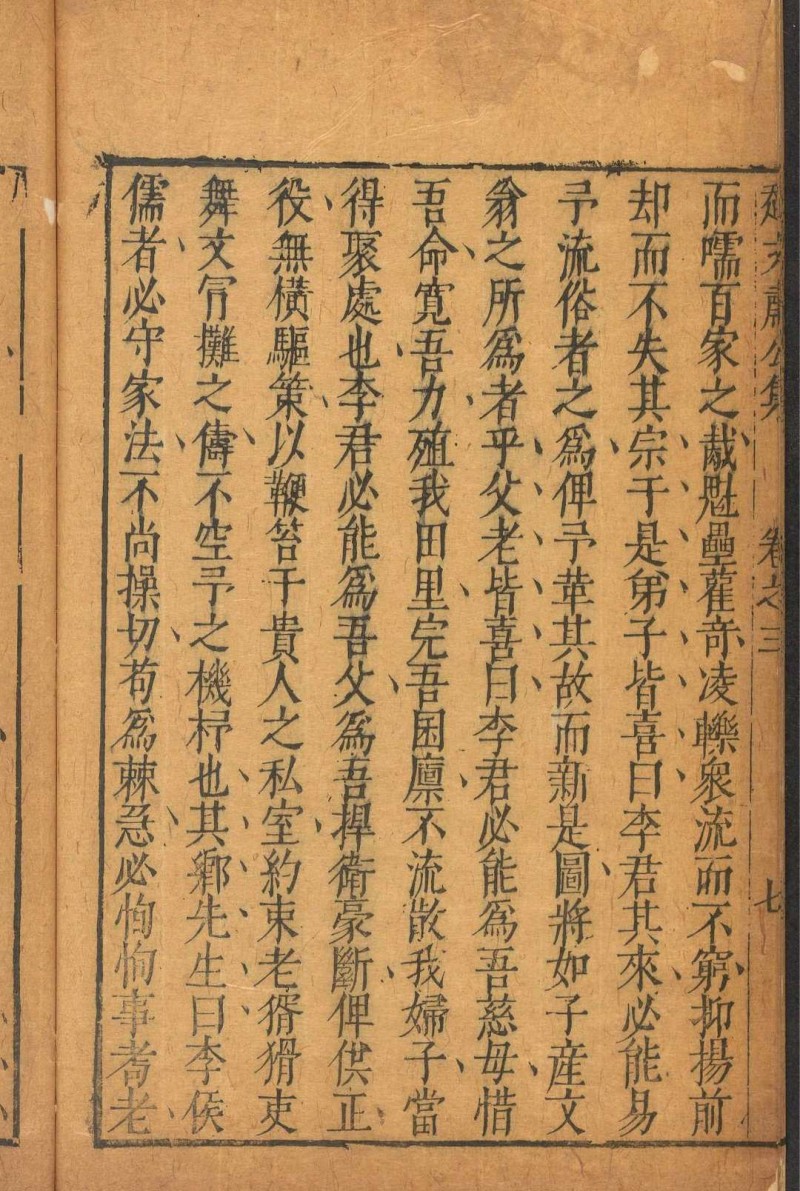 趙文肅公集　卷之三　七
而嚅百家之胾魁壘雚竒凌轢衆流而不窮抑揚前
却而不失其宗于是弟子皆喜曰李君其來必能易
予流俗者之爲俾予革其故而新是圖將如子産文
翁之所爲者乎父老皆喜曰李君必能爲吾慈母惜
吾命寛吾力殖我田里完吾囷廪不流散我婦子當
得聚處也李君必能爲吾父爲吾捍衛豪斷俾供正
役無橫驅策以鞭笞于貴人之私室約束老猾猾吏
舞文冐攤之儔不空予之機杼也其鄉先生曰李侯
儒者必守家法不尚操切苟爲棘急必恂恂事耆老